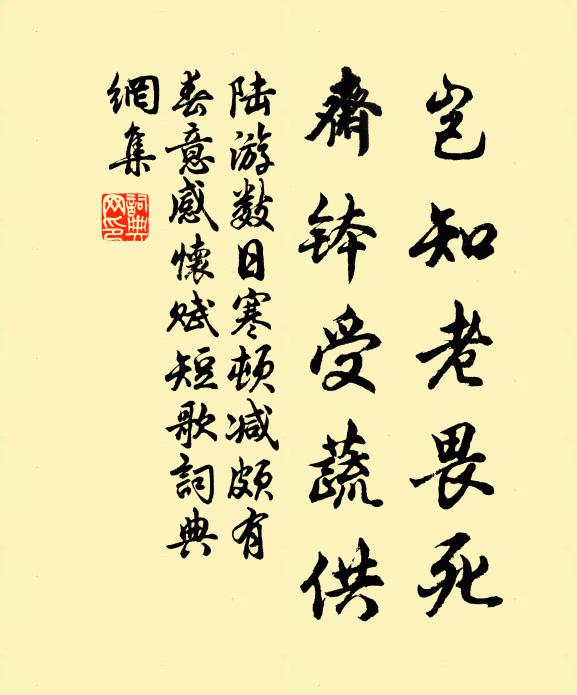 岂知老畏死
齋钵受蔬供
陆游数日寒顿减颇有
春意感怀赋短歌詞典
網集
詞典
网印